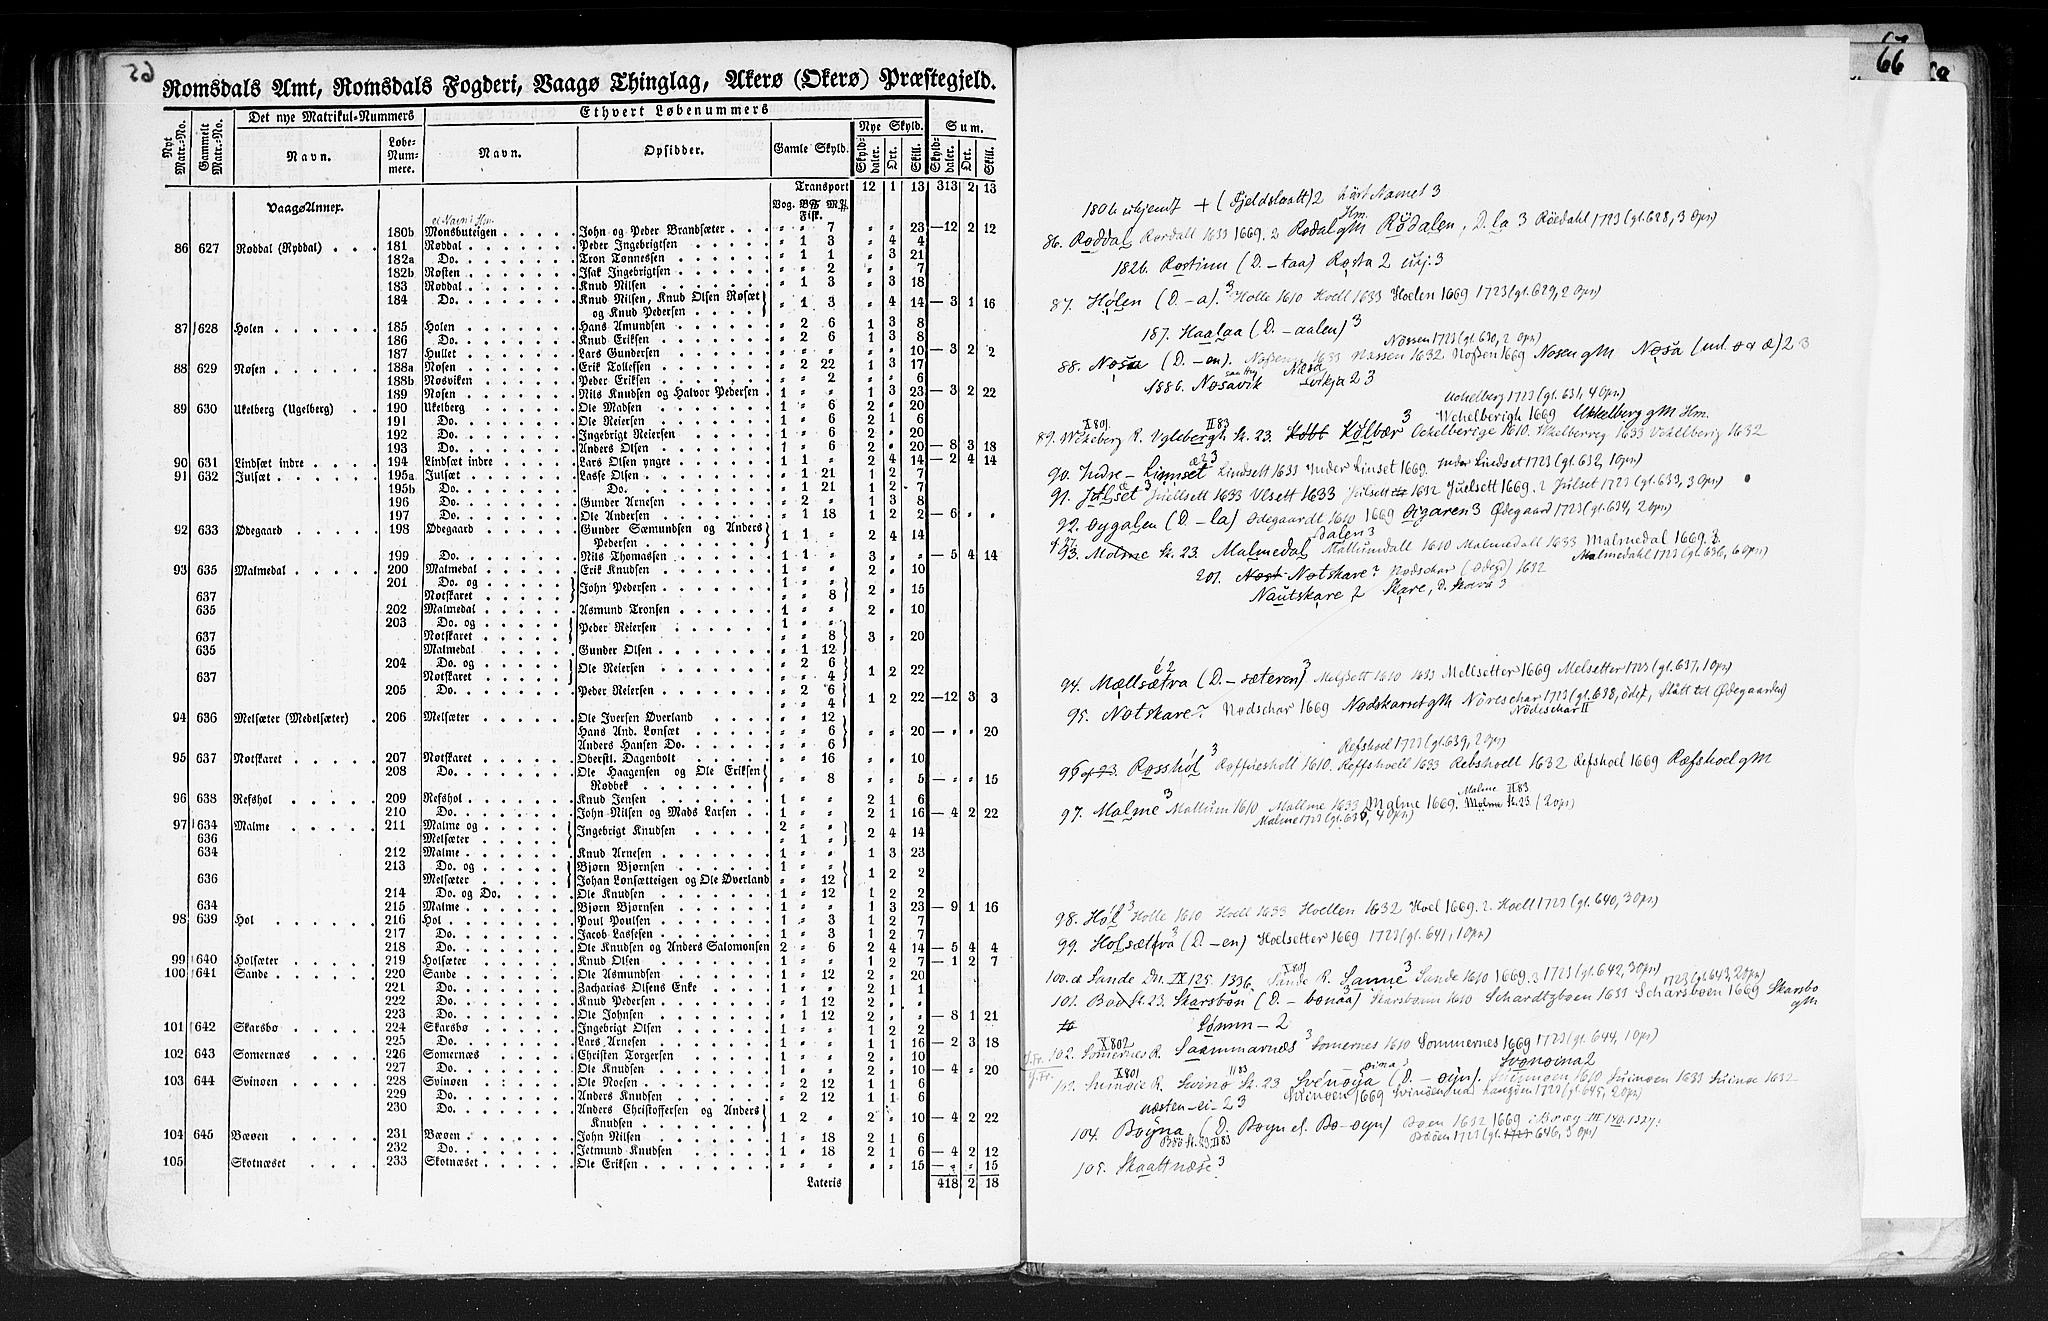 Romsdals Amt, Romsdals Fogderi, Vaagø Thinglag, Akerø (Okerø) Præstegjeld.
Nyt Matr.-No. Gammelt Matr.-No. Det nye Matrikul-Nummers Ethvert Løbenummers
Navn. Løbe-Nummere. Navn. Opsidder. Gamle Skyld. Nye Skyld. Sum.
Skylddaler. Ort. Skill. Skylddaler. Ort. Skill.
Transport 12 1 13 313 2 13
Vaagø Annex. Vog. Fisk.
180b Monsbuteigen John og Peder Brandsæter " " 7 " " 23 —12 2 12
86 627 Røddal (Ryddal) 181 Røddal Peder Ingebrigtsen " 1 3 " 4 4
182a Do. Tron Tønnessen " 1 1 " 3 21
182b Rosten Isak Ingebrigtsen " " 2 " " 7
183 Røddal Knud Nilsen " 1 3 " 3 18
184 Do. Knud Nilsen, Knud Olsen Røsæt og Knud Pedersen " 1 3 " 4 14 — 3 1 16
87 628 Holen 185 Holen Hans Amundsen " 2 6 1 3 8
186 Do. Knud Eriksen " 2 6 1 3 8
187 Hullet Lars Gundersen " " " " " 10 — 3 2 2
88 629 Nosen 188a Nosen Erik Tollefsen " 2 22 1 3 17
188b Nosviken Peder Eriksen " " 2 " " 6
189 Nosen Nils Knudsen og Halvor Pedersen " " " 1 3 23 — 3 2 22
89 630 Ukelberg (Ugelberg) 190 Ukelberg Ole Madsen 1 " 6 2 " 20
191 Do. Ole Reiersen 1 " 6 2 1 6
192 Do. Ingebrigt Reiersen 1 " 6 2 " 20
193 Do. Anders Olsen 1 " 6 2 " 20 — 8 3 18
90 631 Lindsæt indre 194 Lindsæt indre Lars Olsen yngre 1 1 " 2 4 14 — 2 4 14
91 632 Julsæt 195a Julsæt Lasse Olsen " 1 21 1 2 7
195b Do. Do. " 1 21 1 2 7
196 Do. Gunder Arnesen " 2 " 1 3 8
197 Do. Ole Andersen " 1 18 1 2 2 — 6 " "
92 633 Ødegaard 198 Ødegaard Gunder Sæmundsen og Anders Pedersen 1 1 " 2 4 14
199 Do. Nils Thomassen 1 1 " 3 " " — 5 4 14
93 635 Malmedal 200 Malmedal Erik Knudsen 1 " " 2 " 10
201 Do. og 1 " "
637 Notskaret John Pedersen " " 8 2 " 15
635 202 Malmedal Asmund Tronsen 1 " " 2 " 10
203 Do. og 1 " "
637 Notskaret Peder Reiersen " " 8 3 " 20
635 Malmedal Gunder Olsen " 1 12
204 Do. og Ole Reiersen " 2 6
637 Notskaret " " 4 1 2 22
205 Do. Peder Reiersen " 2 6
" " 4 1 2 22 —12 3 3
94 636 Melsæter (Medelsæter) 206 Melsæter Ole Iversen Overland " " 12
Hans And. Lønsæt " " 6 " " 20 — " 20
Anders Hansen Do. " " 6
95 637 Notskaret 207 Notskaret Oberstl. Dagenbolt " " 16 " " 10
208 Do. Ole Haagensen og Ole Eriksen Røddek " " 8 " " 5 — " 15
96 638 Refshol 209 Refshol Knud Jensen 1 " " 2 1 6
210 Do. John Nilsen og Mads Larsen 1 " " 2 1 16 — 4 2 22
97 634 Malme 211 Malme og 2 " "
636 Melsæter Ingebrigt Knudsen " 1 " 2 4 14
634 212 Malme Knud Arnesen 1 " " 1 3 23
213 Do. og Bjørn Bjørnsen 1 " "
636 Melsæter Johan Lønsætteigen og Ole Overland " " 12 1 2 2
214 Do. og Do. Ole Knudsen 1 " 12 1 2 2
634 215 Malme Bjørn Bjørnsen 1 " " 1 3 23 — 9 1 16
98 639 Hol 216 Hol Poul Poulsen 1 " 3 1 2 7
217 Do. Jacob Lassesen 1 " 3 1 2 7
218 Do. Ole Knudsen og Anders Salomonsen 2 " 6 2 4 14 — 5 4 4
99 640 Holsæter 219 Holsæter Knud Olsen 1 " " 1 2 7 — 1 2 7
100 641 Sande 220 Sande Ole Asmundsen 1 " 12 2 " 20
221 Do. Zacharias Olsens Enke 1 " " 2 1 1
222 Do. Knud Pedersen " 1 12 2 " "
223 Do. Ole Johnsen " 1 12 2 " " — 8 1 21
101 642 Skarsbø 224 Skarsbø Ingebrigt Olsen 1 " " 1 2 2
225 Do. Lars Arnesen 1 " " 1 1 16 — 2 3 18
102 643 Somernæs 226 Somernæs Christen Torgersen 1 " " 2 " 10
227 Do. Ole Knudsen 1 " " 2 " 10 — 4 " 20
103 644 Svinøen 228 Svinøen Ole Noesen " 2 12 1 1 6
229 Do. Anders Knudsen " 2 12 1 1 6
230 Do. Anders Christoffersen og Anders Knudsen 1 2 " 2 " 10 — 4 2 22
104 645 Bæøen 231 Bæøen John Nilsen 1 " 18 2 1 6
232 Do. Jetmund Knudsen 1 " 18 2 1 6 — 4 2 12
105 Skotnæset 233 Skotnæset Ole Eriksen " " " " " 15 — " 15
Lateris 418 2 18
66
180b ukjendt + (Fjeldslaatt) 2 kört Namet 3
86. Roddal Rordall 1633 1669. 2 Rodal gM Hm. Rödalen, D. la 3 Röedahl 1723 (gl. 628, 3 Opn)
182b. Rostinn (D. – taa) Rosta 2 ukj. 3
87. Hølen (D. – a). 3 Holle 1610 Hoell 1633 Hoelen 1669 1723 (gl. 629, 2 Opn)
187. Haalaa (D. – aalen) 3
Nössen 1723 (gl. 630, 2 Opn)
88. Nosa (D. – en). 1633 Nassen 1632 Nossen 1669 Nosen gM Nosa (ml. o & æ) 2 3
188b. Nosavik svikja 2 3
Uchelberg 1723 (gl. 631, 4 Opn)
X801 II 83 Wchelberigh 1669 Ukkelberg gM Hm.
89. R. Uglebergh Sk. 23. Kølbær 3 Ockelberige 1610. Vkelberreg 1633 Vchelberig 1632
90. Indre – Linnset Lindsett 1633 Inder Linset 1669. Inder Lindset 1723 (gl. 632, 1 Opn)
91. Julset 3 Juellsett 1633 Vlsett 1633 Julsett 1632 Juelsett 1669. 2 Julset 1723 (gl. 633, 3 Opn)
92. øygalen (D. – la) Odegaardt 1610 1669 øigaren 3 Ødegaard 1723 (gl. 634, 2 Opn)
93. Malme Sk. 23. Malmedal dalen 3 Mallumdall 1610 Malmedall 1633 Malmedal 1669. 3
Malmedahl 1723 (gl. 636, 6 Opn)
201. Notskare? Nodschar (ødeg) 1632
Nautskare 2 Skare, D. Skarva 3
94. Mællsætva (D. – sæteren) 3 Melssett 1610 1633 Mellsetter 1669 Melsetter 1723 (gl. 637, 1 Opn)
95. Notskare? Nodschar 1669 Nodskarset gM Nöreschar 1723 (gl. 638, öde, Slått til Ødegaarden)
Nödeschar II
Refshoel 1723 (gl. 639, 2 Opn)
96 Rosshøl 3 Roffueshell 1610. Reffshoell 1633 Rebshoell 1632 Refshoel 1669 Ræfshoel gM
97. Malme 3 Mallum 1610 Mallme 1633 Malme 1669. Malme II 83 Malme Sk. 23. (2 Opn)
Malme 1723 (gl. 635, 4 Opn)
98. Høl 3 Holle 1610 Hoell 1633 Hoellen 1632 Hoel 1669. 2. Hoell 1723 (gl. 640, 3 Opn)
99. Holsætva 3 (D. – en) Hoelsetter 1669 1723 (gl. 641, 1 Opn)
100. a Sande Dn. IX 125. 1336. X801 Sande R. Sanne 3 Sande 1610 1669. 3 1723 (gl. 642, 3 Opn)
1723 (gl. 643, 2 Opn)
101. Boo Sk. 23. Skarsbön (D. – bonaa) Skarsbønn 1610 Schardtzboen 1633 Scharsboen 1669 Skarsbo gM
Sømm – 2
102. Somernes R. X802 Saammarnæs 3 Somernes 1610 Sommernes 1669 1723 (gl. 644, 1 Opn)
103. R. X801 Svinø Sk. 23 II 83 Svenøya (D. – øyn). Svonøina 2 1610 Suinøen 1633 Suinøe 1632
næsten – ei – 2 3 1669 1723 (gl. 645, 2 Opn)
104. Bøyna (D. Boyn el. Bo-oyn) Boen 1632 1669 i Boøy III 140. 1327.
Boø Sk. 23 II 83 Bøöen 1723 (gl. 646, 3 Opn)
105. Skaattnæse 3